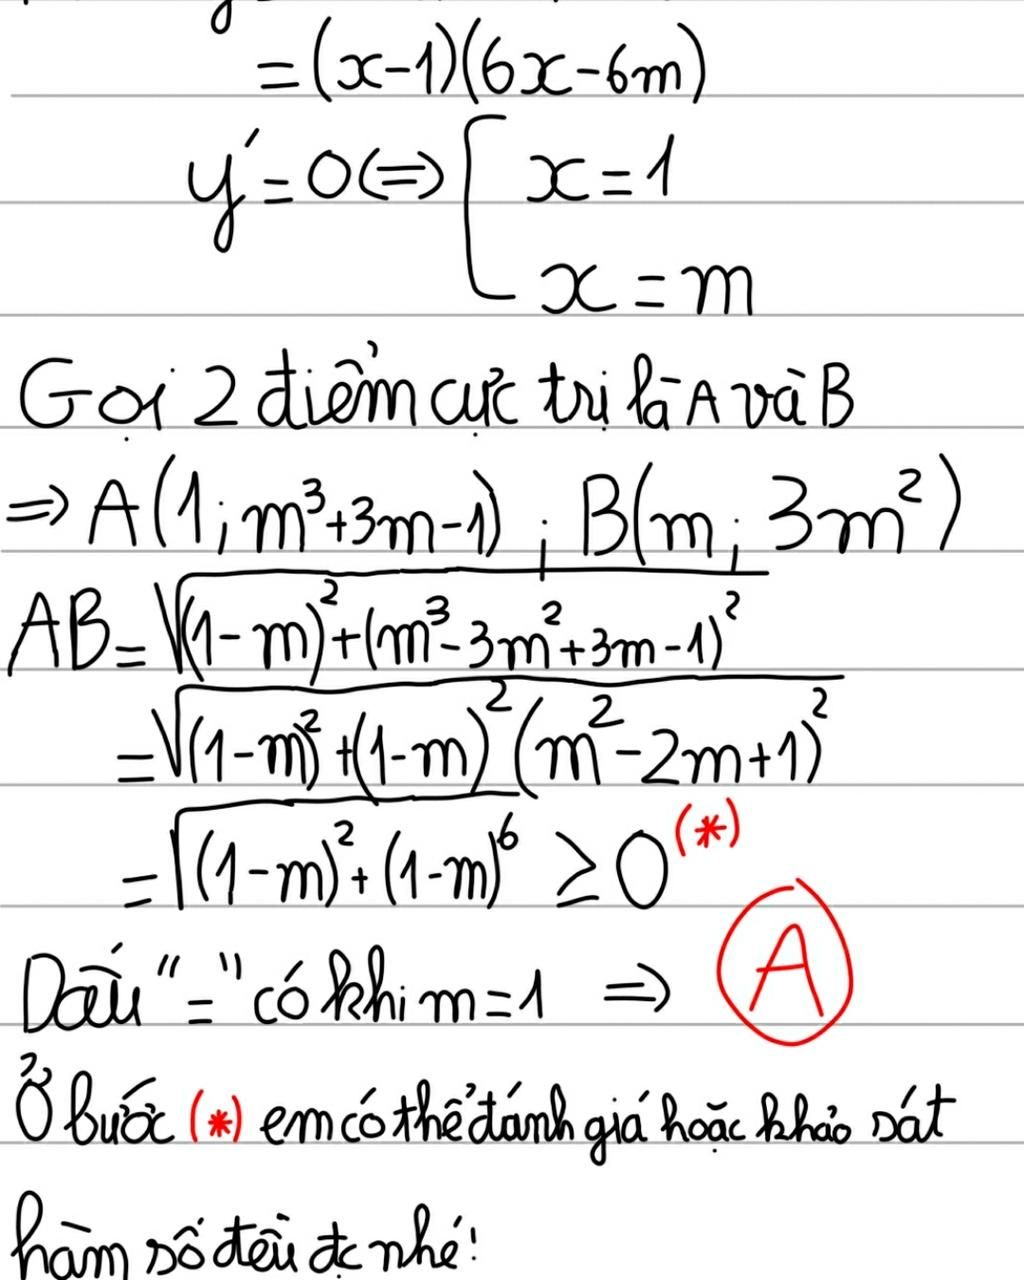 = (x-1)(6x-6m)
y' = 0 <=> [ x = 1
x = m
Gọi 2 điểm cực trị là A và B
=> A(1; m³+3m-1) ; B(m; 3m²)
AB = √((1-m)²+(m³-3m²+3m-1)²)
= √((1-m)²+(1-m)²(m²-2m+1)²)
= √((1-m)²+(1-m)⁶) ≥ 0 (*)
Dấu "=" có khi m=1 => A
Ở bước (*) em có thể đánh giá hoặc khảo sát
hàm số đều đc nhé!